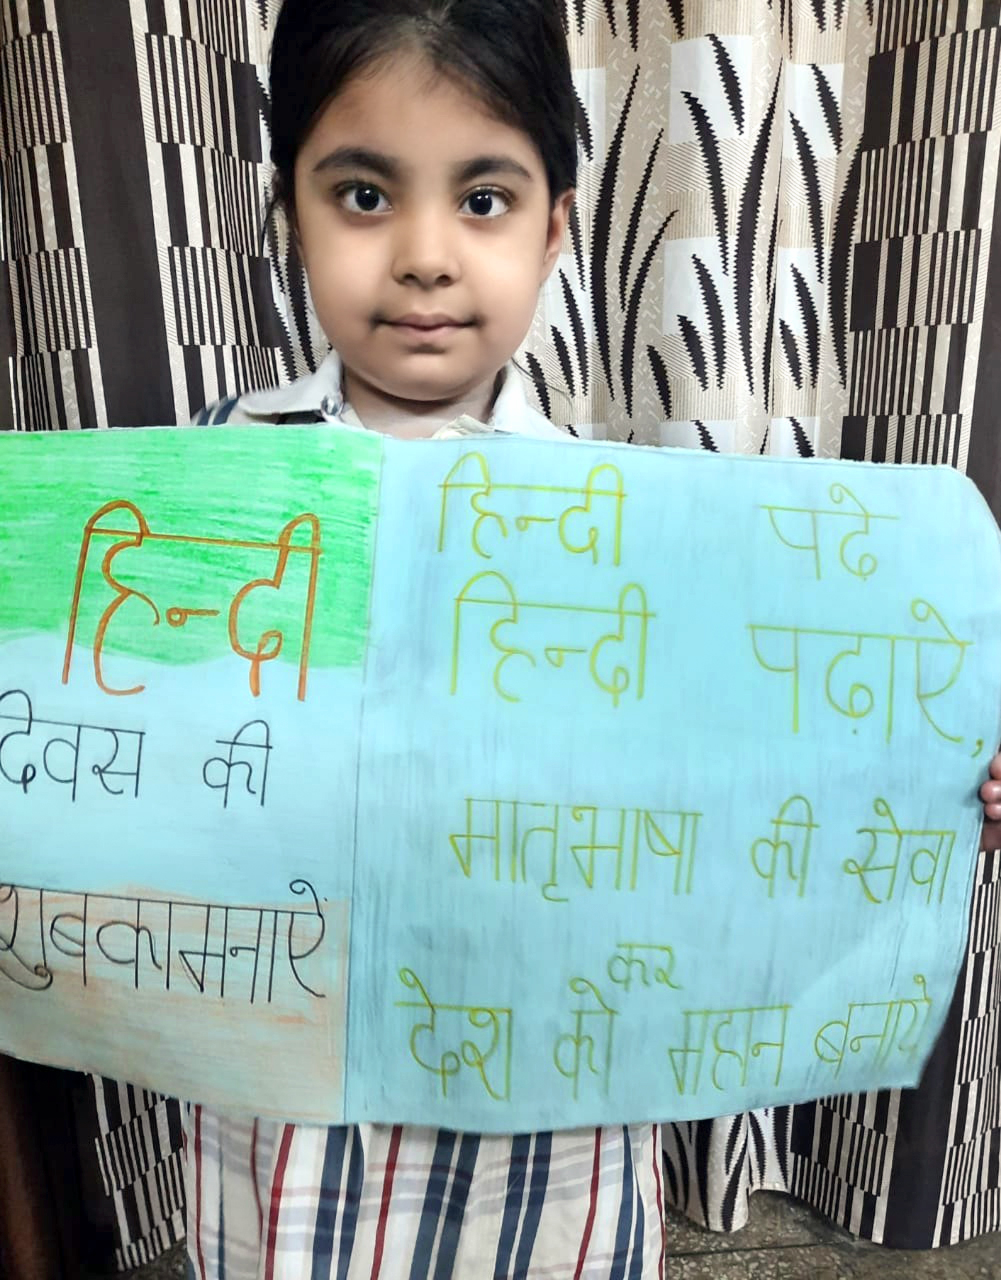 हिन्दी
दिवस की
शुबकामनाऐं
हिन्दी पढे
हिन्दी पढ़ाऐ,
मातृभाषा की सेवा
कर
देश को महान बनाये